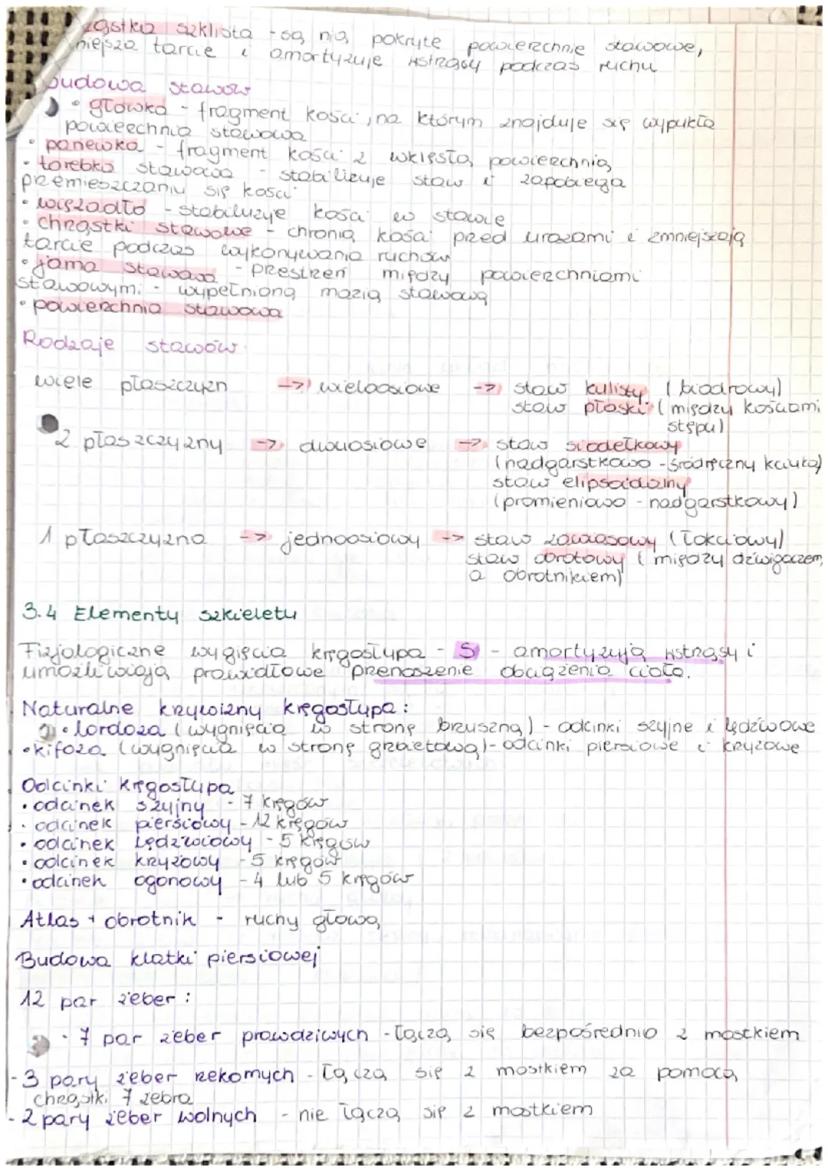 ząstka szklista - są nią pokryte powierzchnie stawowe,
niejsza tarcie i amortyzuje wstrząsy podczas ruchu
budowa stawów
• główka - fragment kości, na którym znajduje się wypukła
powierzchnia stawowa
• panewka - fragment kości z wklęsłą powierzchnią
• torebka stawowa - stabilizuje staw i zapobiega
przemieszczaniu się kości
• więzadło - stabilizuje kości w stawie
• chrząstki stawowe - chronią kości przed urazami i zmniejszają
tarcie podczas wykonywania ruchów
• jama stawowa - przestrzeń między powierzchniami
stawowymi - wypełnioną mazią stawową
• powierzchnia stawowa
Rodzaje stawów
wiele płaszczyzn -> wieloosiowe -> staw kulisty (biodrowy)
staw płaski (między kościami
stępu)
2 płaszczyzny -> dwuosiowe -> staw siodełkowy
(nadgarstkowo-śródręczny kciuka)
staw elipsoidalny
(promieniowo-nadgarstkowy)
1 płaszczyzna -> jednoosiowy -> staw zawiasowy (łokciowy)
staw obrotowy (między dźwigaczem
a obrotnikiem)
3.4 Elementy szkieletu
Fizjologiczne wygięcia kręgosłupa - S - amortyzują wstrząsy i
umożliwiają prawidłowe przenoszenie obciążenia ciała.
Naturalne krzywizny kręgosłupa:
• lordoza (wygnięcia w stronę brzuszną) - odcinki szyjne i lędźwiowe
• kifoza (wygnięcia w stronę grzbetową) - odcinki piersiowe i krzyżowe
Odcinki kręgosłupa
• odcinek szyjny - 7 kręgów
• odcinek piersiowy - 12 kręgów
• odcinek lędźwiowy - 5 kręgów
• odcinek krzyżowy - 5 kręgów
• odcinek ogonowy - 4 lub 5 kręgów
Atlas + obrotnik - ruchy głową
Budowa klatki piersiowej
12 par żeber:
• 7 par żeber prawdziwych - łączą się bezpośrednio z mostkiem
- 3 pary żeber rzekomych - łączą się z mostkiem za pomocą
chrząstki 7 żebra
- 2 pary żeber wolnych - nie łączą się z mostkiem